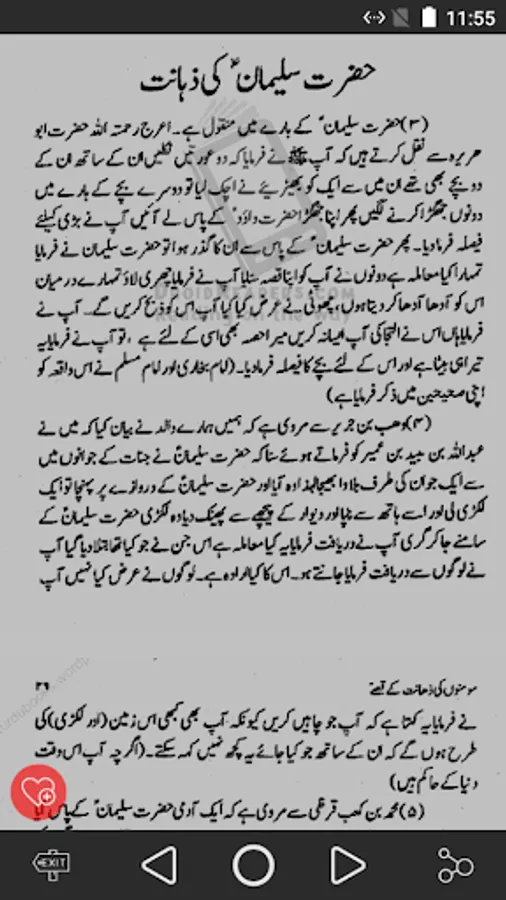 11:55
حضرت سلیمانؑ کی ذہانت
(۳) حضرت سلیمانؑ کے بارے میں منقول ہے۔ اعرج رحمتہ اللہ حضرت ابو
ھریرہ سے نقل کرتے ہیں کہ آپ ﷺ نے فرمایا کہ دو عورتیں نکلیں ان کے ساتھ ان کے
دو بچے بھی تھے ان میں سے ایک کو بھیڑیئے نے اچک لیا تو دوسرے بچے کے بارے میں
دونوں جھگڑا کرنے لگیں پھر اپنا جھگڑا حضرت داؤدؑ کے پاس لے آئیں آپ نے بڑی کیلئے
فیصلہ فرما دیا۔ پھر حضرت سلیمانؑ کے پاس سے ان کا گذر ہوا تو حضرت سلیمان نے فرمایا
تمہارا کیا معاملہ ہے دونوں نے آپ کو اپنا قصہ سنایا آپ نے فرمایا چھری لاؤ تمہارے درمیان
اس کو آدھا آدھا کر دیتا ہوں، چھوٹی نے عرض کیا کیا آپ اس کو ذبح کریں گے۔ آپ نے
فرمایا ہاں اس نے التجا کی آپ ایسا نہ کریں میرا حصہ بھی اسی کے لئے ہے، تو آپ نے فرمایا یہ
تیرا ہی بیٹا ہے اور اس کے لئے بچے کا فیصلہ فرما دیا۔ (امام بخاری اور امام مسلم نے اس واقعہ کو
اپنی صحیحین میں ذکر فرمایا ہے)
(۴) وھب بن جریر سے مروی ہے کہ ہمیں ہمارے والد نے بیان کیا کہ میں نے
عبداللہ بن عبید بن عمیر کو فرماتے ہوئے سنا کہ حضرت سلیمانؑ نے جنات کے جوانوں میں
سے ایک جوان کی طرف بلاوا بھیجا لہذا وہ آیا اور حضرت سلیمانؑ کے دروازے پر پہنچا تو ایک
لکڑی لی اور اسے ہاتھ سے ناپا اور دیوار کے پیچھے سے پھینک دیا وہ لکڑی حضرت سلیمانؑ کے
سامنے جا کر گری آپ نے دریافت فرمایا یہ کیا معاملہ ہے اس جن نے جو کیا تھا بتلا دیا گیا آپ
نے لوگوں سے دریافت فرمایا جانتے ہو۔ اس کا کیا ارادہ ہے۔ لوگوں نے عرض کیا نہیں آپ
مومنوں کی ذھانت کے قصے ۳۶
نے فرمایا یہ کہتا ہے کہ آپ جو چاہیں کریں کیونکہ آپ بھی کبھی اس زمین (اور لکڑی) کی
طرح ہوں گے کہ ان کے ساتھ جو کیا جائے یہ کچھ نہیں کہہ سکتے۔ (اگرچہ آپ اس وقت
دنیا کے حاکم ہیں)
(۵) محمد بن کعب قرظی سے مروی ہے کہ ایک آدمی حضرت سلیمانؑ کے پاس آیا
EXIT